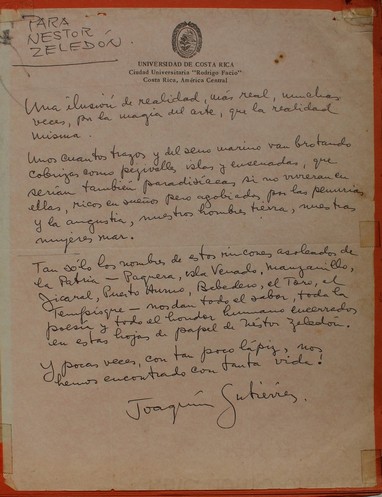 PARA
NESTOR
ZELEDÓN.
UNIVERSIDAD DE COSTA RICA
Ciudad Universitaria "Rodrigo Facio"
Costa Rica, América Central
Una ilusión de realidad, más real, muchas
veces, por la magia del arte, que la realidad
misma.
Unos cuantos trazos y del seno marino van brotando
cobrizas como pejivalles islas y ensenadas, que
serían también paradisíacas si no vivieran en
ellas, ricos en sueños pero agobiados por las penurias
y la angustia, nuestros hombres tierra, nuestras
mujeres mar.
Tan sólo los nombres de estos rincones asoleados de
la Patria — Paquera, isla Venado, Manzanillo,
Jicaral, Puerto Humo, Bebedero, el Toro, el
Tempisque — nos dan todo el sabor, toda la
poesía y todo el hondor humano encerrados
en estas hojas de papel de Néstor Zeledón.
Y pocas veces, con tan poco lápiz, nos
hemos encontrado con tanta vida!
Joaquín Gutiérrez.